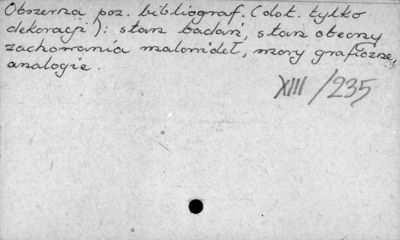 Obszerna poz. bibliograf. (dot. tylko
dekoracji): stan badań, stan obecny
zachowania malowideł, wzory graficzne,
analogie.
XIII/235